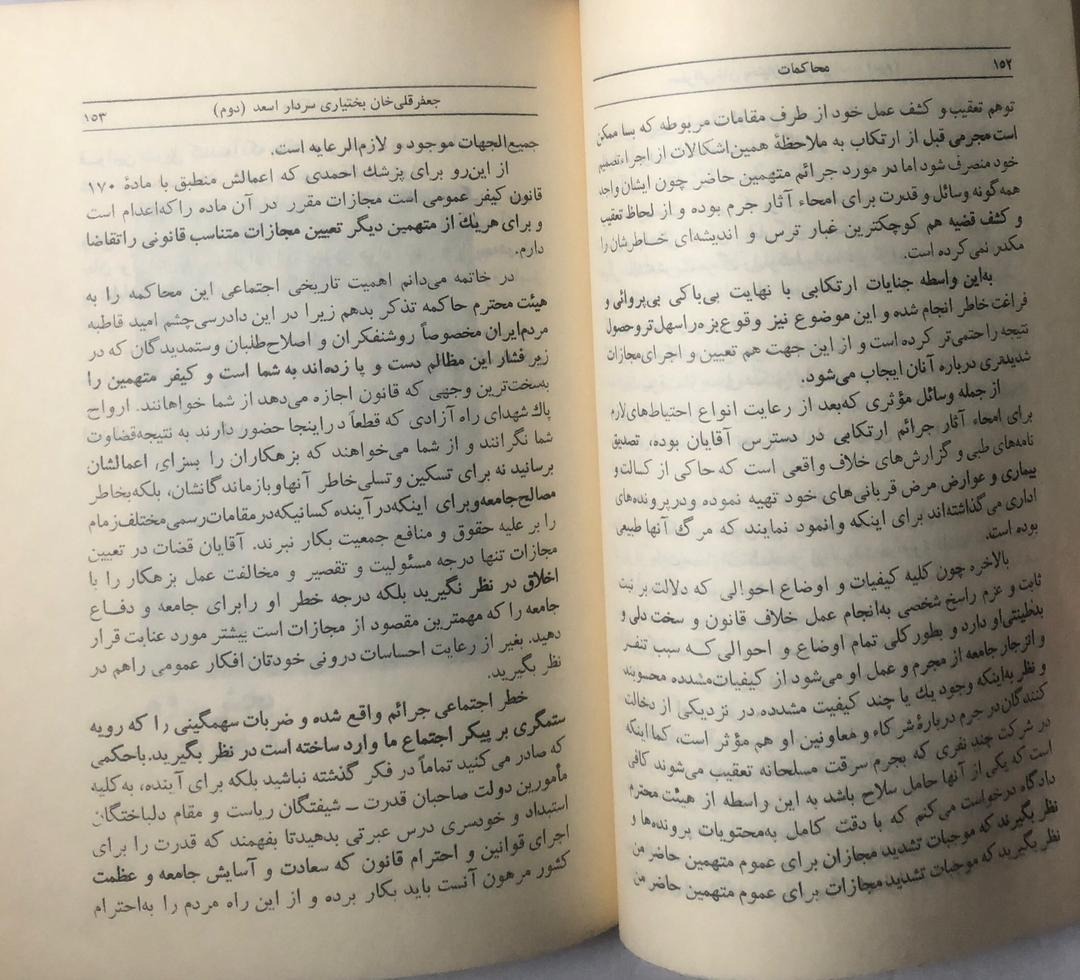 ۱۵۲
محاکمات
توهم تعقیب و کشف عمل خود از طرف مقامات مربوطه که بسا ممکن
است مجرمی قبل از ارتکاب به ملاحظهٔ همین اشکالات از اجراء تصمیم
خود منصرف شود اما در مورد جرائم متهمین حاضر چون ایشان واجد
همه‌گونه وسائل و قدرت برای امحاء آثار جرم بوده و از لحاظ تعقیب
و کشف قضیه هم کوچکترین غبار ترس و اندیشه‌ای خاطرشان را
مکدر نمی‌کرده است.
به‌این واسطه جنایات ارتکابی با نهایت بی‌باکی بی‌پروائی و
فراغت خاطر انجام شده و این موضوع نیز وقوع بزه را سهل‌تر و حصول
نتیجه را حتمی‌تر کرده است و از این جهت هم تعیین و اجرای مجازات
شدیدتری درباره آنان ایجاب می‌شود.
از جمله وسائل مؤثری که‌بعد از رعایت انواع احتیاط‌های‌لازم
برای امحاء آثار جرائم ارتکابی در دسترس آقایان بوده، تصدیق
نامه‌های طبی و گزارش‌های خلاف واقعی است که حاکی از کسالت و
بیماری و عوارض مرض قربانی‌های خود تهیه نموده و در پرونده‌های
اداری می‌گذاشته‌اند برای اینکه وانمود نمایند که مرگ آنها طبیعی
بوده است.
بالاخره چون کلیه کیفیات و اوضاع احوالی که دلالت بر نیت
ثابت و عزم راسخ شخصی به‌انجام عمل خلاف قانون و سخت دلی و
بدطینتی او دارد و بطور کلی تمام اوضاع و احوالی که سبب تنفر
و انزجار جامعه از مجرم و عمل او می‌شود از کیفیات مشدده محسوبند
و نظر به‌اینکه وجود یك یا چند کیفیت مشدده در نزدیکی از دخالت
کنندگان در جرم دربارهٔ شرکاء و معاونین او هم مؤثر است، کما اینکه
در شرکت چند نفری که بجرم سرقت مسلحانه تعقیب می‌شوند کافی
است که یکی از آنها حامل سلاح باشد به این واسطه از هیئت محترم
دادگاه درخواست می‌کنم که با دقت کامل به‌محتویات پرونده‌ها و
نظر بگیرند که موجبات تشدید مجازان برای عموم متهمین حاضر من
نظر بگیرید که موجبات تشدید مجازات برای عموم متهمین حاضر من
جعفرقلی‌خان بختیاری سردار اسعد (دوم)
۱۵۳
جمیع‌الجهات موجود و لازم‌الرعایه است.
از این‌رو برای پزشك احمدی که اعمالش منطبق با مادهٔ ۱۷۰
قانون کیفر عمومی است مجازات مقرر در آن ماده را که‌اعدام است
و برای هریك از متهمین دیگر تعیین مجازات متناسب قانونی را تقاضا
دارم.
در خاتمه می‌دانم اهمیت تاریخی اجتماعی این محاکمه را به
هیئت محترم حاکمه تذکر بدهم زیرا در این دادرسی چشم امید قاطبه
مردم‌ایران مخصوصاً روشنفکران و اصلاح‌طلبان و ستمدیدگان که در
زیر فشار این مظالم دست و پا زده‌اند به شما است و کیفر متهمین را
به‌سخت‌ترین وجهی که قانون اجازه می‌دهد از شما خواهانند. ارواح
پاك شهدای راه آزادی که قطعاً در اینجا حضور دارند به نتیجه‌قضاوت
شما نگرانند و از شما می‌خواهند که بزهکاران را بسزای اعمالشان
برسانید نه برای تسکین و تسلی خاطر آنها و بازماندگانشان، بلکه‌بخاطر
مصالح‌جامعه و برای اینکه در آینده کسانیکه در مقامات رسمی مختلف زمام
را بر علیه حقوق و منافع جمعیت بکار نبرند. آقایان قضات در تعیین
مجازات تنها درجه مسئولیت و تقصیر و مخالفت عمل بزهکار را با
اخلاق در نظر نگیرید بلکه درجه خطر او را برای جامعه و دفاع
جامعه را که مهمترین مقصود از مجازات است بیشتر مورد عنایت قرار
دهید. بغیر از رعایت احساسات درونی خودتان افکار عمومی را هم در
نظر بگیرید.
خطر اجتماعی جرائم واقع شده و ضربات سهمگینی را که رویه
ستمگری بر پیکر اجتماع ما وارد ساخته است در نظر بگیرید. با حکمی
که صادر می‌کنید تماماً در فکر گذشته نباشید بلکه برای آینده، به‌کلیه
مأمورین دولت صاحبان قدرت ــ شیفتگان ریاست و مقام دلباختگان
استبداد و خودسری درس عبرتی بدهید تا بفهمند که قدرت را برای
اجرای قوانین و احترام قانون که سعادت و آسایش جامعه و عظمت
کشور مرهون آنست باید بکار برده و از این راه مردم را به‌احترام